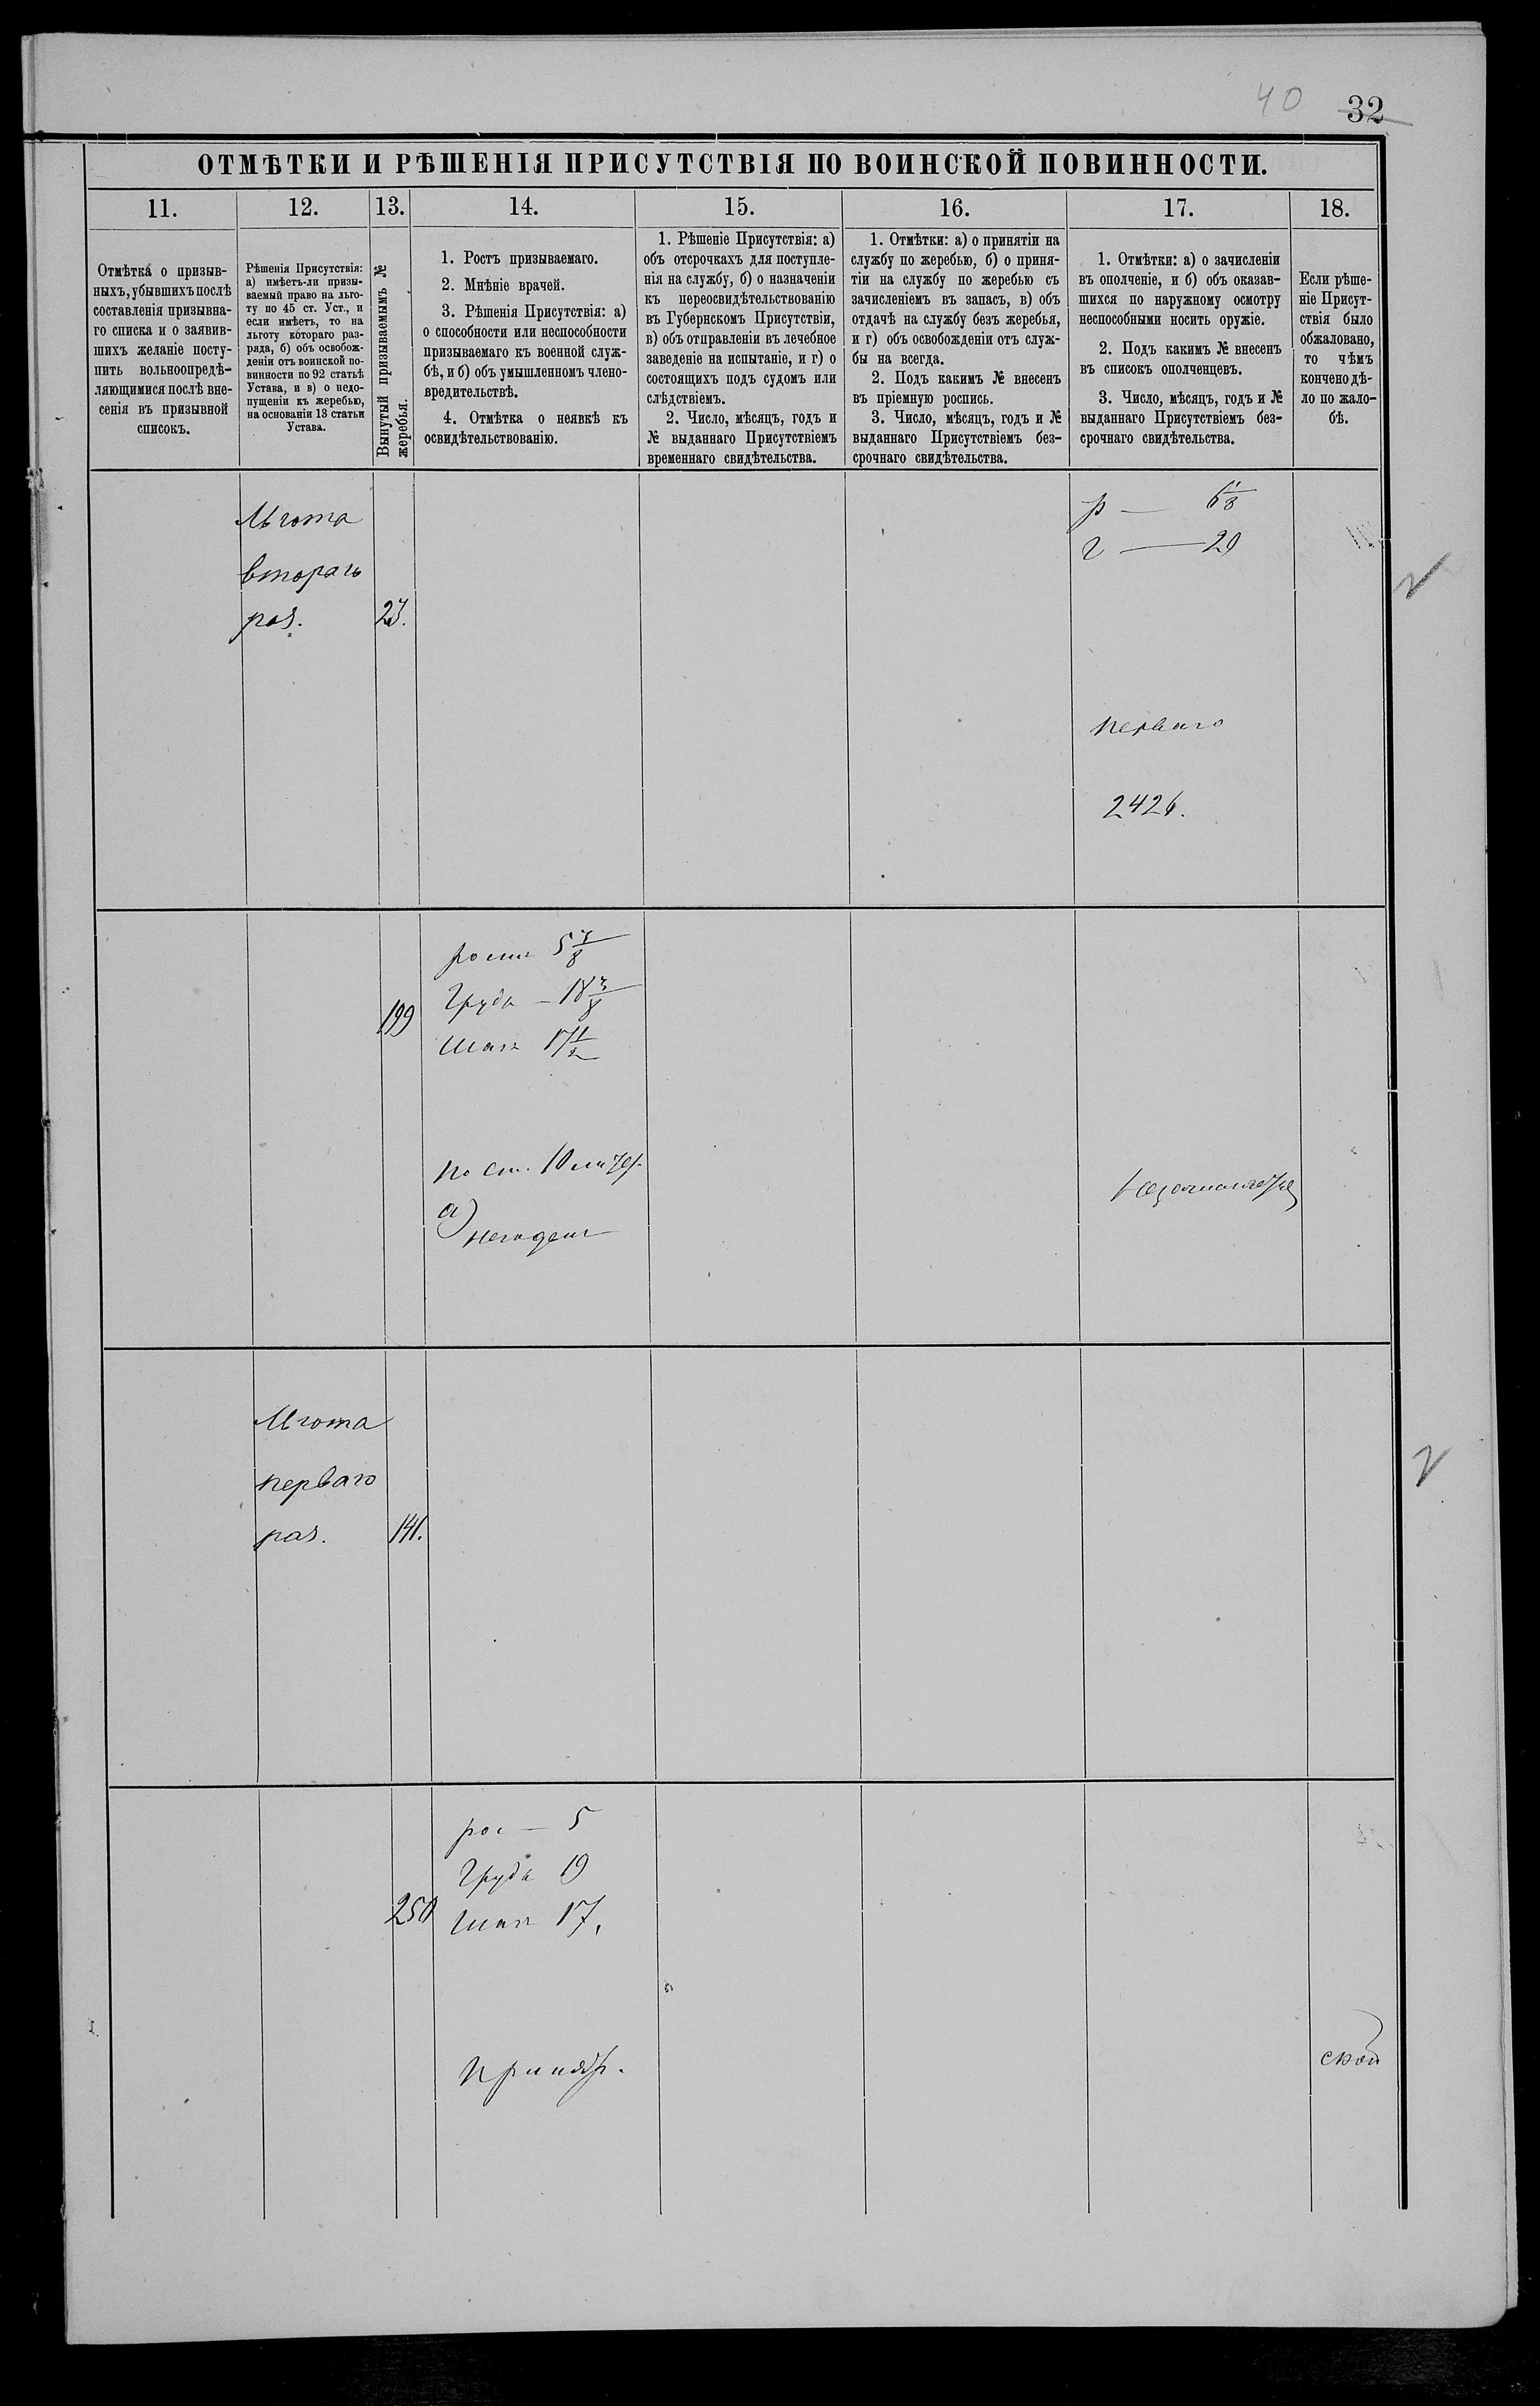 40 32
ОТМѢТКИ И РѢШЕНІЯ ПРИСУТСТВІЯ ПО ВОИНСКОЙ ПОВИННОСТИ.
11.
Отмѣтка о призыв-
ныхъ, убывшихъ послѣ
составленія призывна-
го списка и о заявив-
шихъ желаніе посту-
пить вольноопредѣ-
ляющимися послѣ вне-
сенія въ призывной
списокъ.
12.
Рѣшенія Присутствія:
а) имѣетъ-ли призы-
ваемый право на льго-
ту по 45 ст. Уст., и
если имѣетъ, то на
льготу котораго раз-
ряда, б) объ освобож-
деніи отъ воинской по-
винности по 92 статьѣ
Устава, и в) о недо-
пущеніи къ жеребью,
на основаніи 13 статьи
Устава.
13.
Вынутый призываемымъ №
жеребья.
14.
1. Ростъ призываемаго.
2. Мнѣніе врачей.
3. Рѣшенія Присутствія: а)
о способности или неспособности
призываемаго къ военной служ-
бѣ, и б) объ умышленномъ члено-
вредительствѣ.
4. Отмѣтка о неявкѣ къ
освидѣтельствованію.
15.
1. Рѣшеніе Присутствія: а)
объ отсрочкахъ для поступле-
нія на службу, б) о назначеніи
къ переосвидѣтельствованію
въ Губернскомъ Присутствіи,
в) объ отправленіи въ лечебное
заведеніе на испытаніе, и г) о
состоящихъ подъ судомъ или
слѣдствіемъ.
2. Число, мѣсяцъ, годъ и
№ выданнаго Присутствіемъ
временнаго свидѣтельства.
16.
1. Отмѣтки: а) о принятіи на
службу по жеребью, б) о приня-
тіи на службу по жеребью съ
зачисленіемъ въ запасъ, в) объ
отдачѣ на службу безъ жеребья,
и г) объ освобожденіи отъ служ-
бы на всегда.
2. Подъ какимъ № внесенъ
въ пріемную роспись.
3. Число, мѣсяцъ, годъ и №
выданнаго Присутствіемъ без-
срочнаго свидѣтельства.
17.
1. Отмѣтки: а) о зачисленіи
въ ополченіе, и б) объ оказав-
шихся по наружному осмотру
неспособными носить оружіе.
2. Подъ какимъ № внесенъ
въ списокъ ополченцевъ.
3. Число, мѣсяцъ, годъ и №
выданнаго Присутствіемъ без-
срочнаго свидѣтельства.
18.
Если рѣше-
ніе Присут-
ствія было
обжаловано,
то чѣмъ
кончено дѣ-
ло по жало-
бѣ.
Льгота
втораго
раз.
23.
р — 6 1/8
г — 20
перваго
2426.
199
ростъ 5 7/8
Грудь — 18 3/8
Шагъ 17 1/2
по ст. 10
а)
негоденъ
Льгота
перваго
раз.
141.
250
рос — 5
Грудь 19
Шагъ 17.
Принятъ.
ской